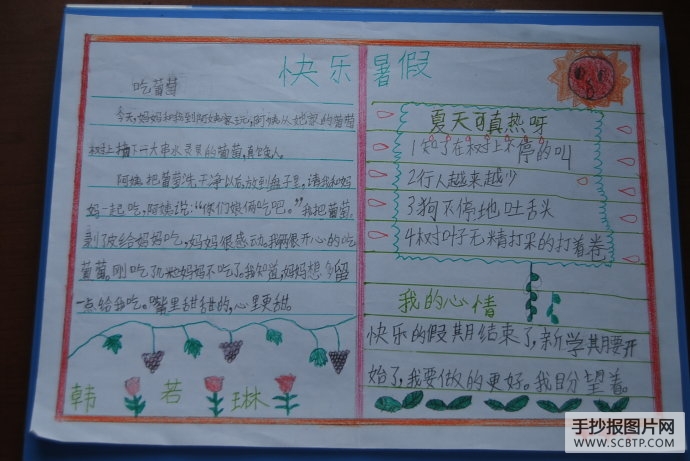 快乐暑假
吃葡萄
今天,妈妈和我到阿姨家玩,阿姨从她家的葡萄
树上摘下一大串水灵灵的葡萄,真馋人。
阿姨把葡萄洗干净以后,放到盘子里。请我和妈
妈一起吃,阿姨说:“你们娘俩吃吧。”我把葡萄
剥了皮给妈妈吃,妈妈很感动。我俩很开心的吃
葡萄。刚吃了几粒妈妈不吃了。我知道,妈妈想多留
一点给我吃。嘴里甜甜的,心里更甜。
韩若琳
夏天可真热呀
1知了在树上不停的叫
2行人越来越少
3狗不停地吐舌头
4树叶子无精打采的打着卷
我的心情
快乐的假期结束了,新学期要开
始了,我要做的更好。我自盼望着。
手抄报图片网
WWW.SCBTP.COM